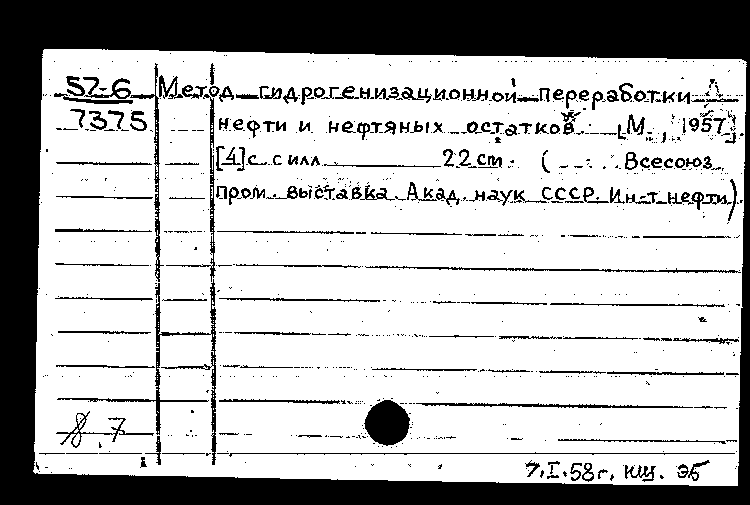 57-6 Метод гидрогенизационной переработки
7375 нефти и нефтяных остатков [М., 1957].
[4]с. с илл. 22 cm. ( Всесоюз.
пром. выставка. Акад. наук СССР. Ин-т нефти).
8.7
7.I.58г. эб